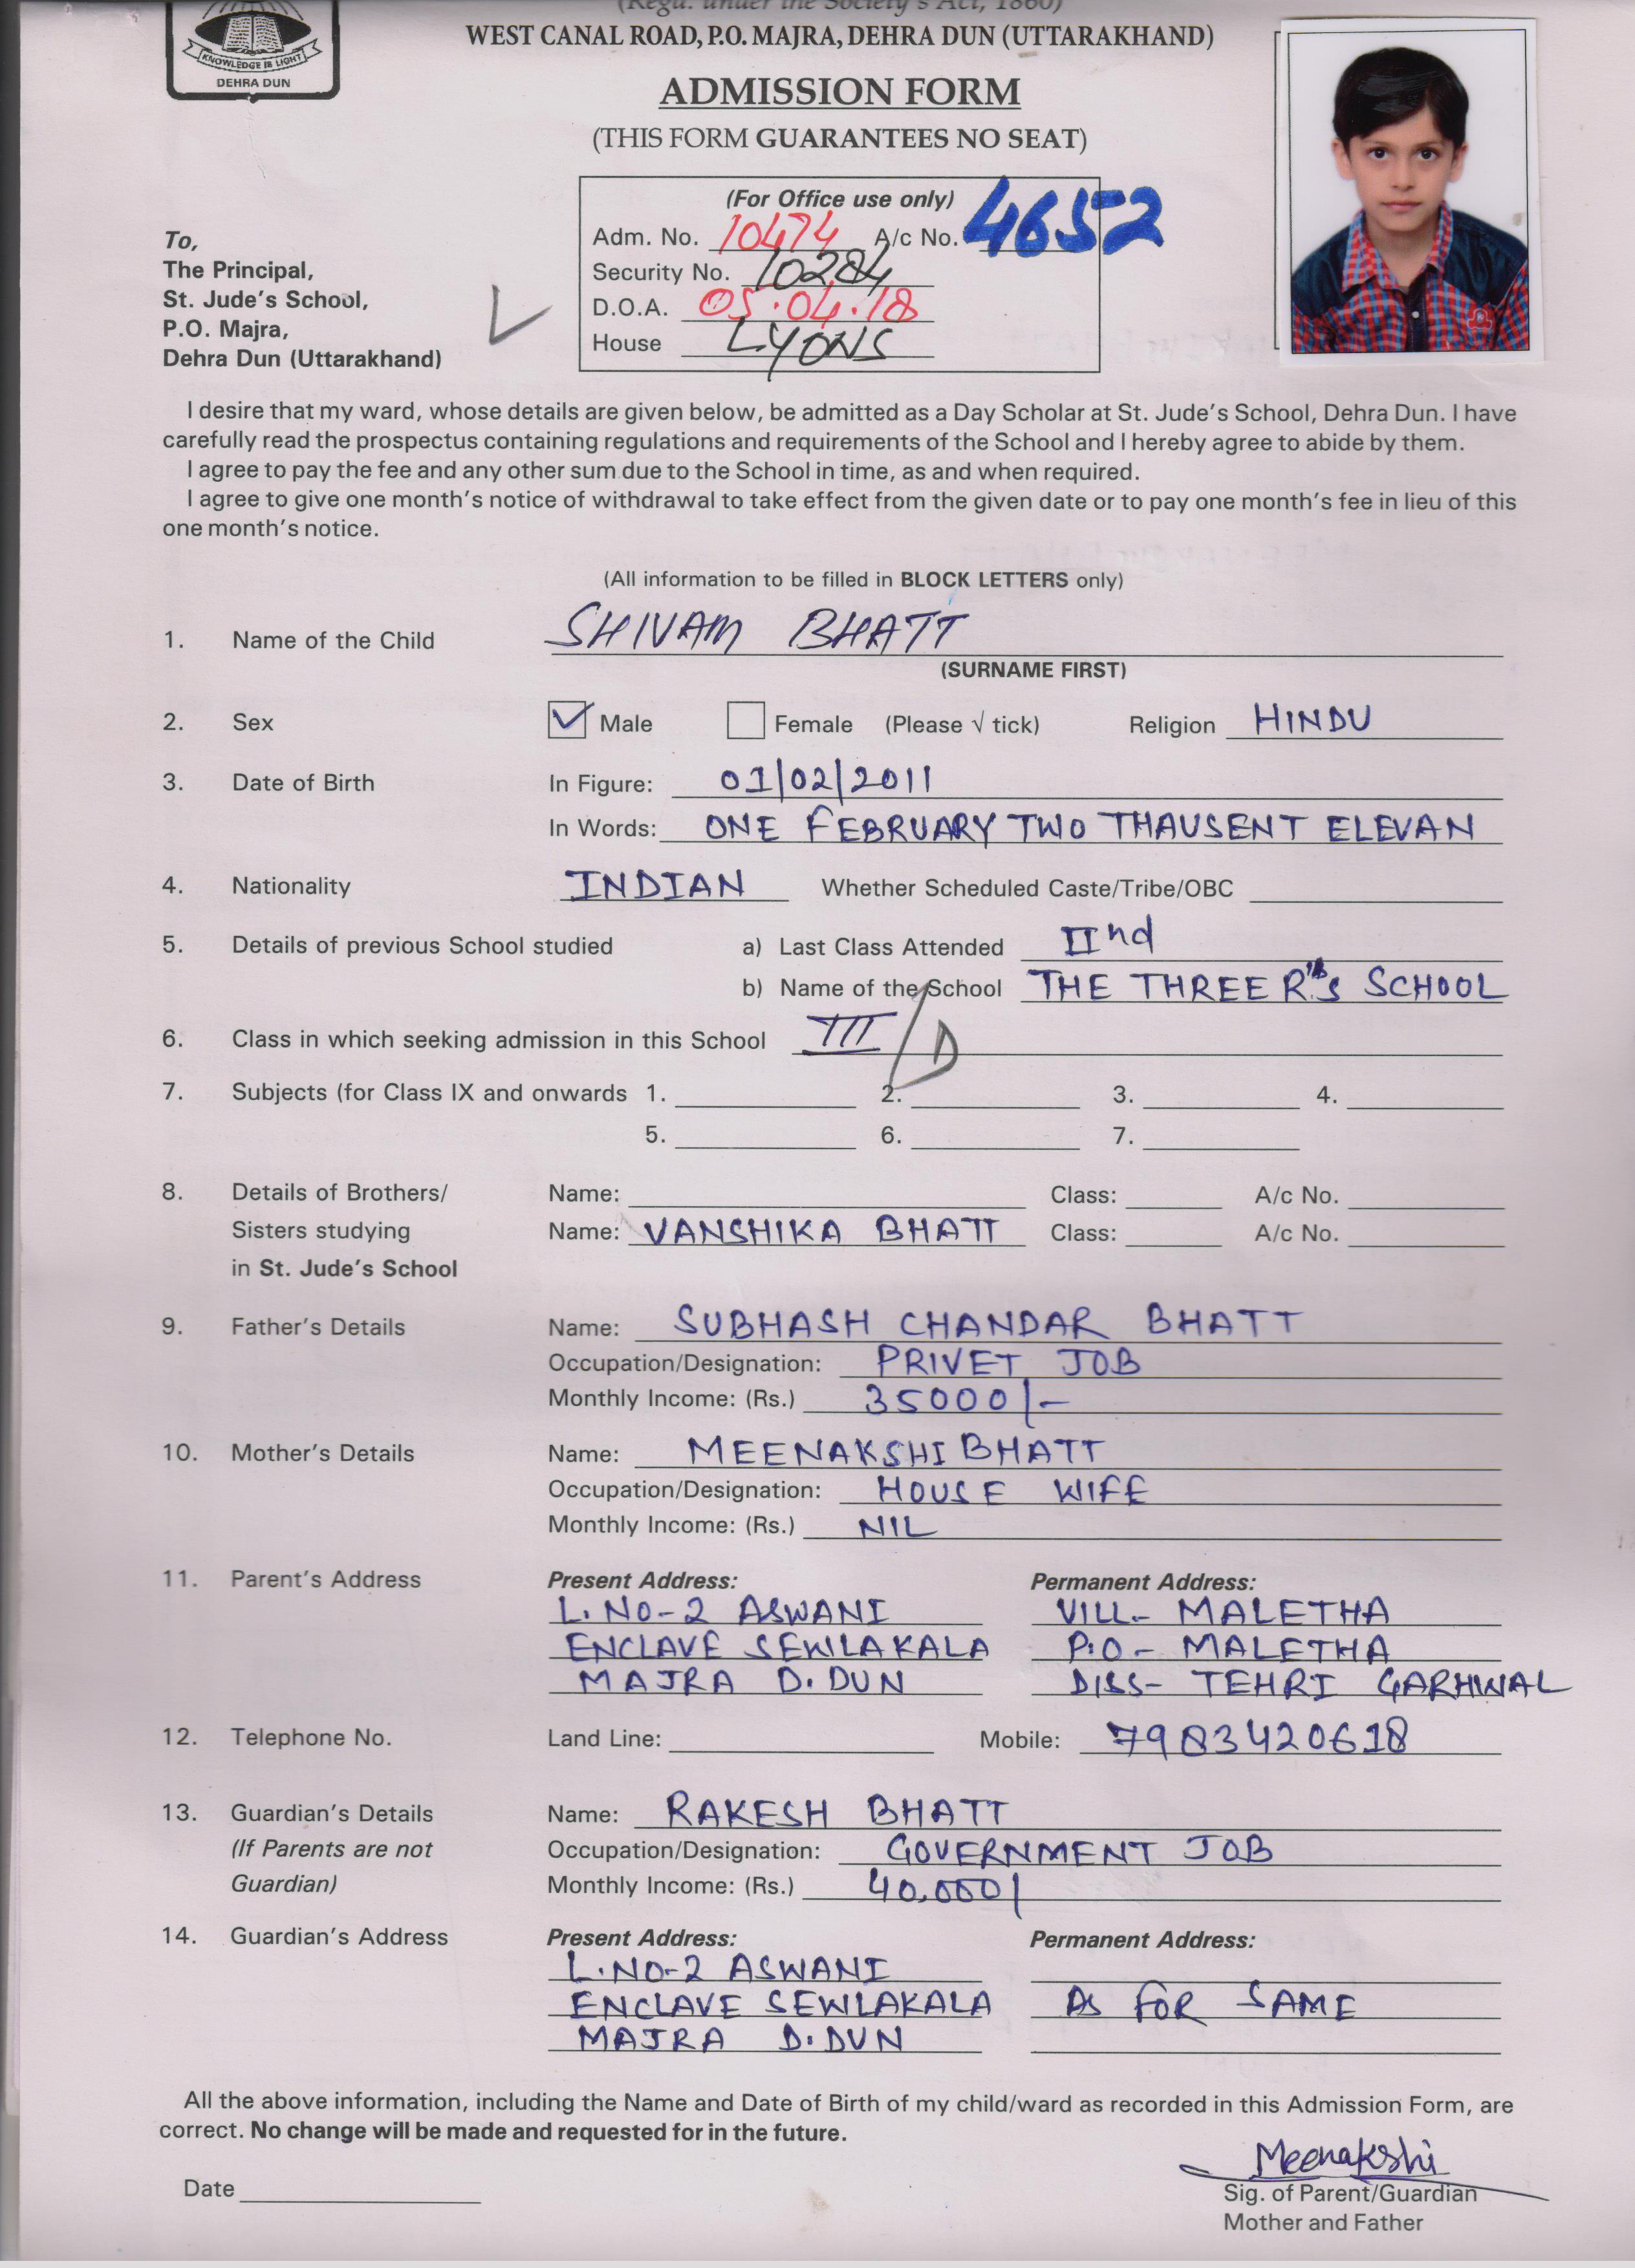 (Regd. under the Society's Act, 1860)
WEST CANAL ROAD, P.O. MAJRA, DEHRA DUN (UTTARAKHAND)
KNOWLEDGE IS LIGHT
DEHRA DUN
ADMISSION FORM
(THIS FORM GUARANTEES NO SEAT)
(For Office use only)
Adm. No. 10474 A/c No. 4652
Security No. 10284
D.O.A. 05.04.18
House LYONS
To,
The Principal,
St. Jude's School,
P.O. Majra,
Dehra Dun (Uttarakhand)
I desire that my ward, whose details are given below, be admitted as a Day Scholar at St. Jude's School, Dehra Dun. I have
carefully read the prospectus containing regulations and requirements of the School and I hereby agree to abide by them.
I agree to pay the fee and any other sum due to the School in time, as and when required.
I agree to give one month's notice of withdrawal to take effect from the given date or to pay one month's fee in lieu of this
one month's notice.
(All information to be filled in BLOCK LETTERS only)
1. Name of the Child SHIVAM BHATT
(SURNAME FIRST)
2. Sex Male Female (Please √ tick) Religion HINDU
3. Date of Birth In Figure: 01/02/2011
In Words: ONE FEBRUARY TWO THAUSENT ELEVAN
4. Nationality INDIAN Whether Scheduled Caste/Tribe/OBC
5. Details of previous School studied a) Last Class Attended IInd
b) Name of the School THE THREE R's SCHOOL
6. Class in which seeking admission in this School III/D
7. Subjects (for Class IX and onwards 1. 2. 3. 4.
5. 6. 7.
8. Details of Brothers/ Name: Class: A/c No.
Sisters studying Name: VANSHIKA BHATT Class: A/c No.
in St. Jude's School
9. Father's Details Name: SUBHASH CHANDAR BHATT
Occupation/Designation: PRIVET JOB
Monthly Income: (Rs.) 35000/-
10. Mother's Details Name: MEENAKSHI BHATT
Occupation/Designation: HOUSE WIFE
Monthly Income: (Rs.) NIL
11. Parent's Address Present Address: Permanent Address:
L.NO-2 ASWANI VILL- MALETHA
ENCLAVE SEWLAKALA P.O- MALETHA
MAJRA D.DUN DISS- TEHRI GARHWAL
12. Telephone No. Land Line: Mobile: 7983420618
13. Guardian's Details Name: RAKESH BHATT
(If Parents are not Occupation/Designation: GOVERNMENT JOB
Guardian) Monthly Income: (Rs.) 40,000/
14. Guardian's Address Present Address: Permanent Address:
L.NO-2 ASWANI
ENCLAVE SEWLAKALA AS FOR SAME
MAJRA D.DUN
All the above information, including the Name and Date of Birth of my child/ward as recorded in this Admission Form, are
correct. No change will be made and requested for in the future.
Meenakshi
Date Sig. of Parent/Guardian
Mother and Father